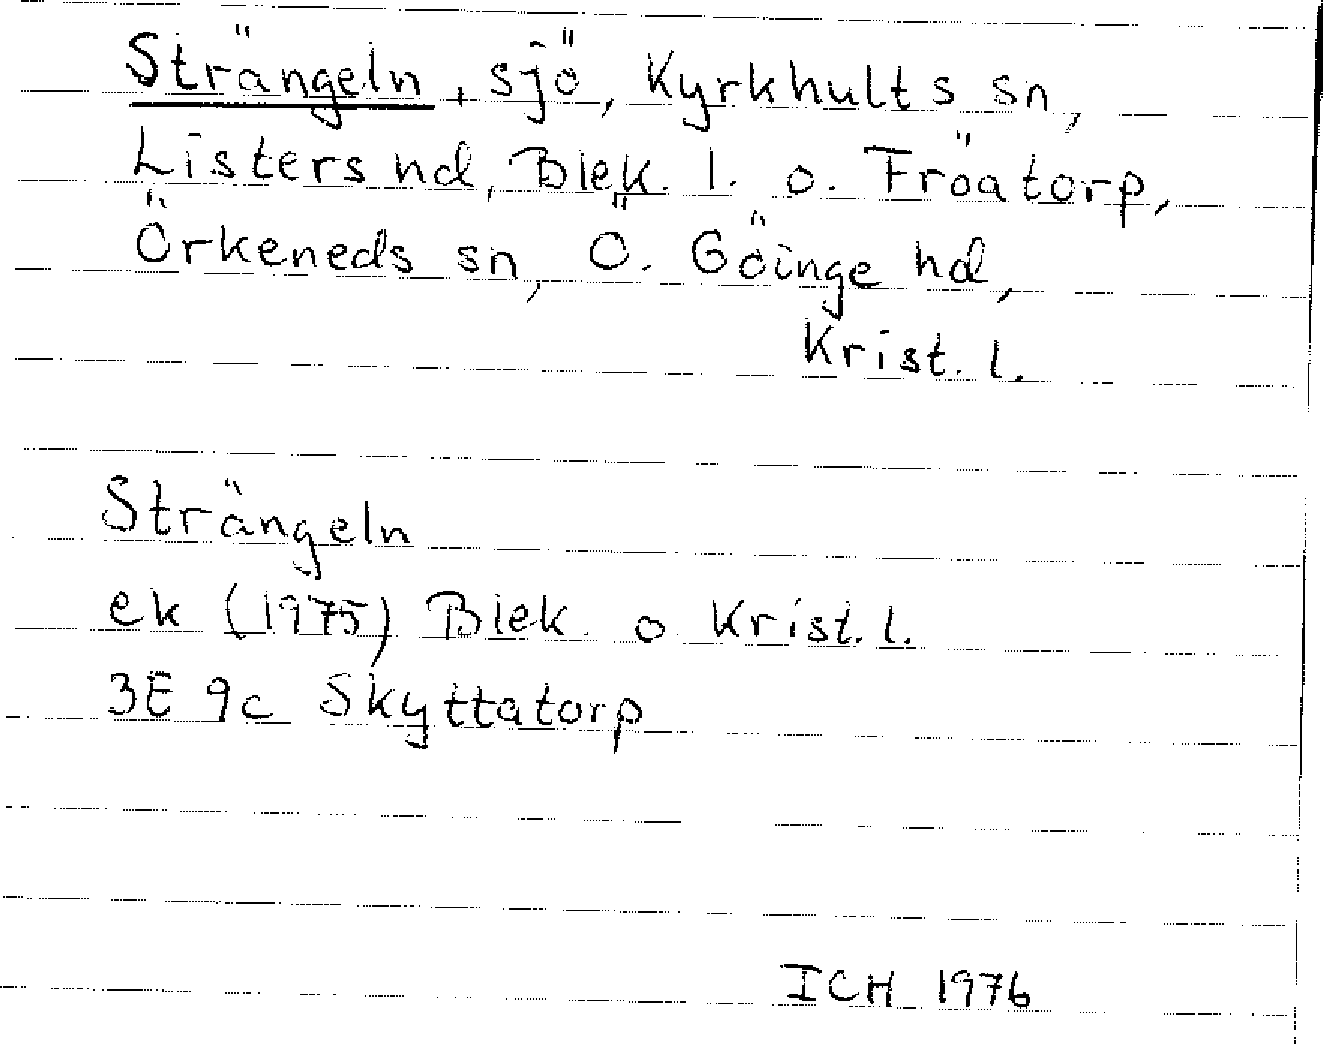 Strängeln, sjö, Kyrkhults sn,
Listers hd, Blek. l. o. Fröatorp,
Örkeneds sn, Ö. Göinge hd,
Krist. l.
Strängeln
ek (1975) Blek. o Krist. l.
3E 9c Skyttatorp
ICH 1976